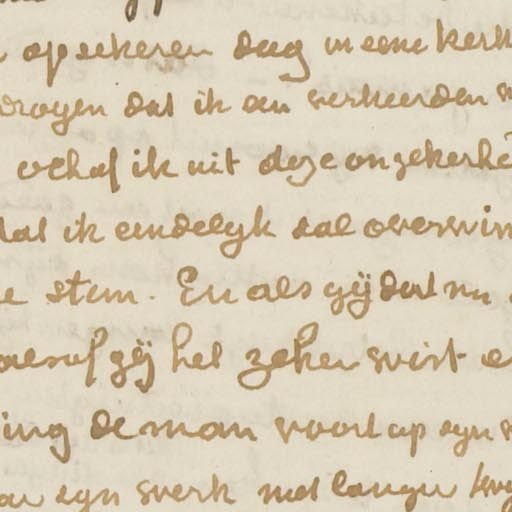 op sekeren dag in eene kerk
dat ik en verkeerden
ik uit deze onzekerhe
dat ik eindelyk sal overwin
stem. En als gÿ dat nu
alsof gÿ het zeker wist e
ing de man voort op syn
syn werk met langer